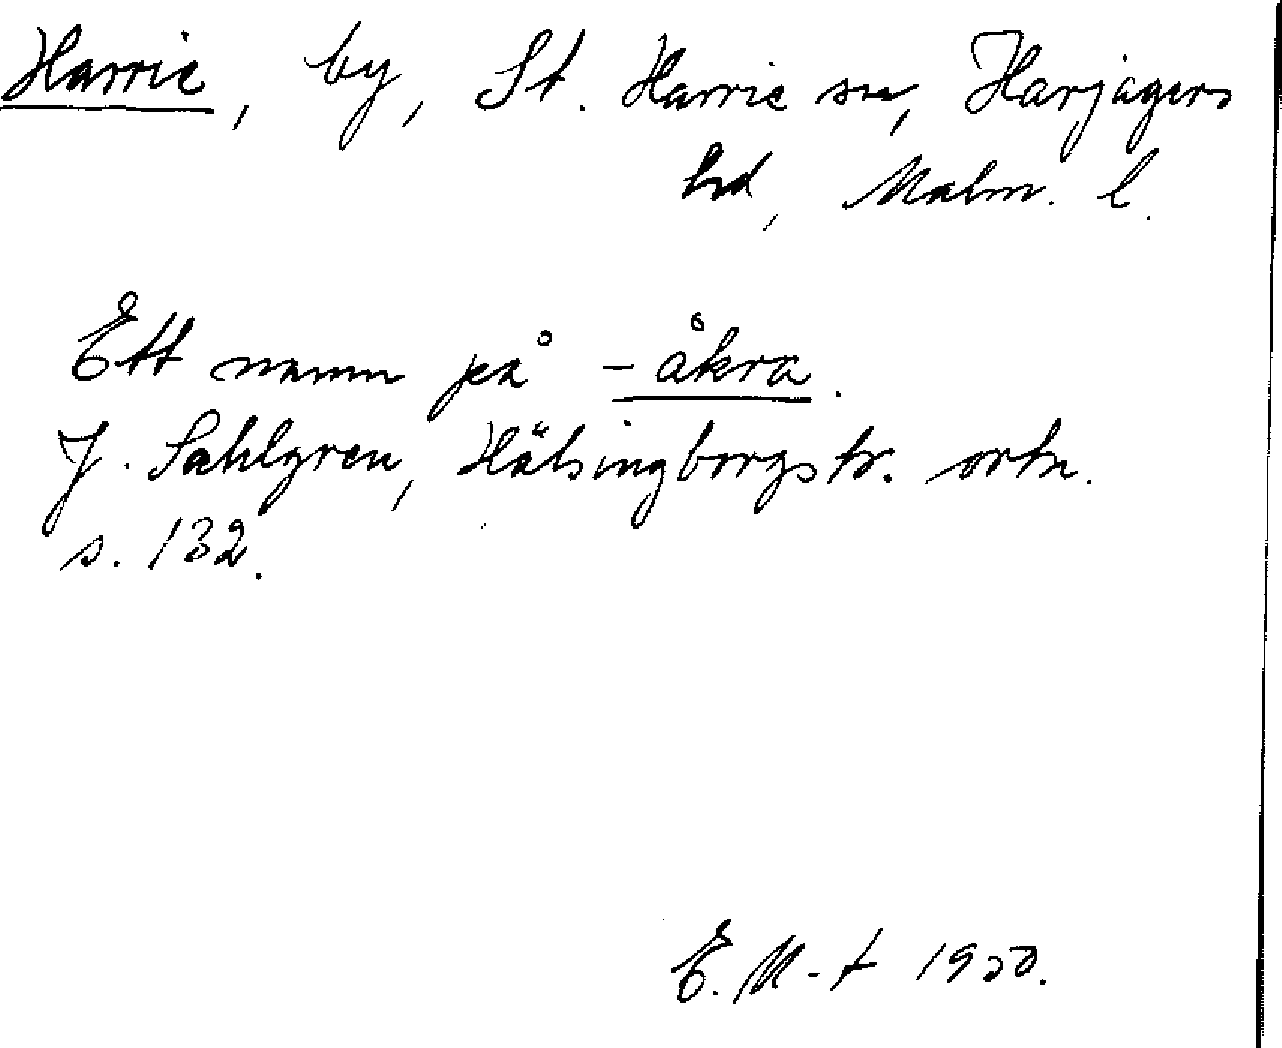 Harrie, by, St. Harrie sn, Harjagers
hd, Malm. l.
Ett namn på -åkra.
J. Sahlgren, Hälsingborgstr. ortn.
s. 132.
E. M-t 1920.